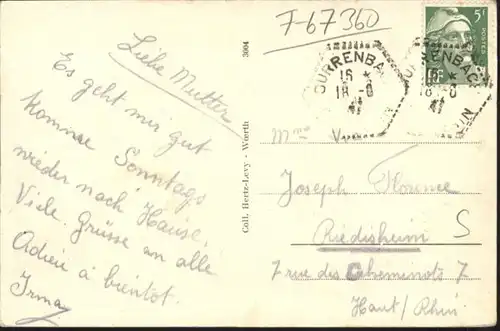 F-67360
Liebe Mutter
Es geht mir gut
komme Sonntags
wieder nach Hause.
Viele Grüsse an alle
Adieu à bientôt.
Irma
Coll. Hertz-Levy - Wœrth
3004
5F
POSTES
16 *
18 -8
Mme Vve
Joseph Florence
Riedisheim S
7 rue des Cheminots 7
Haut/Rhin